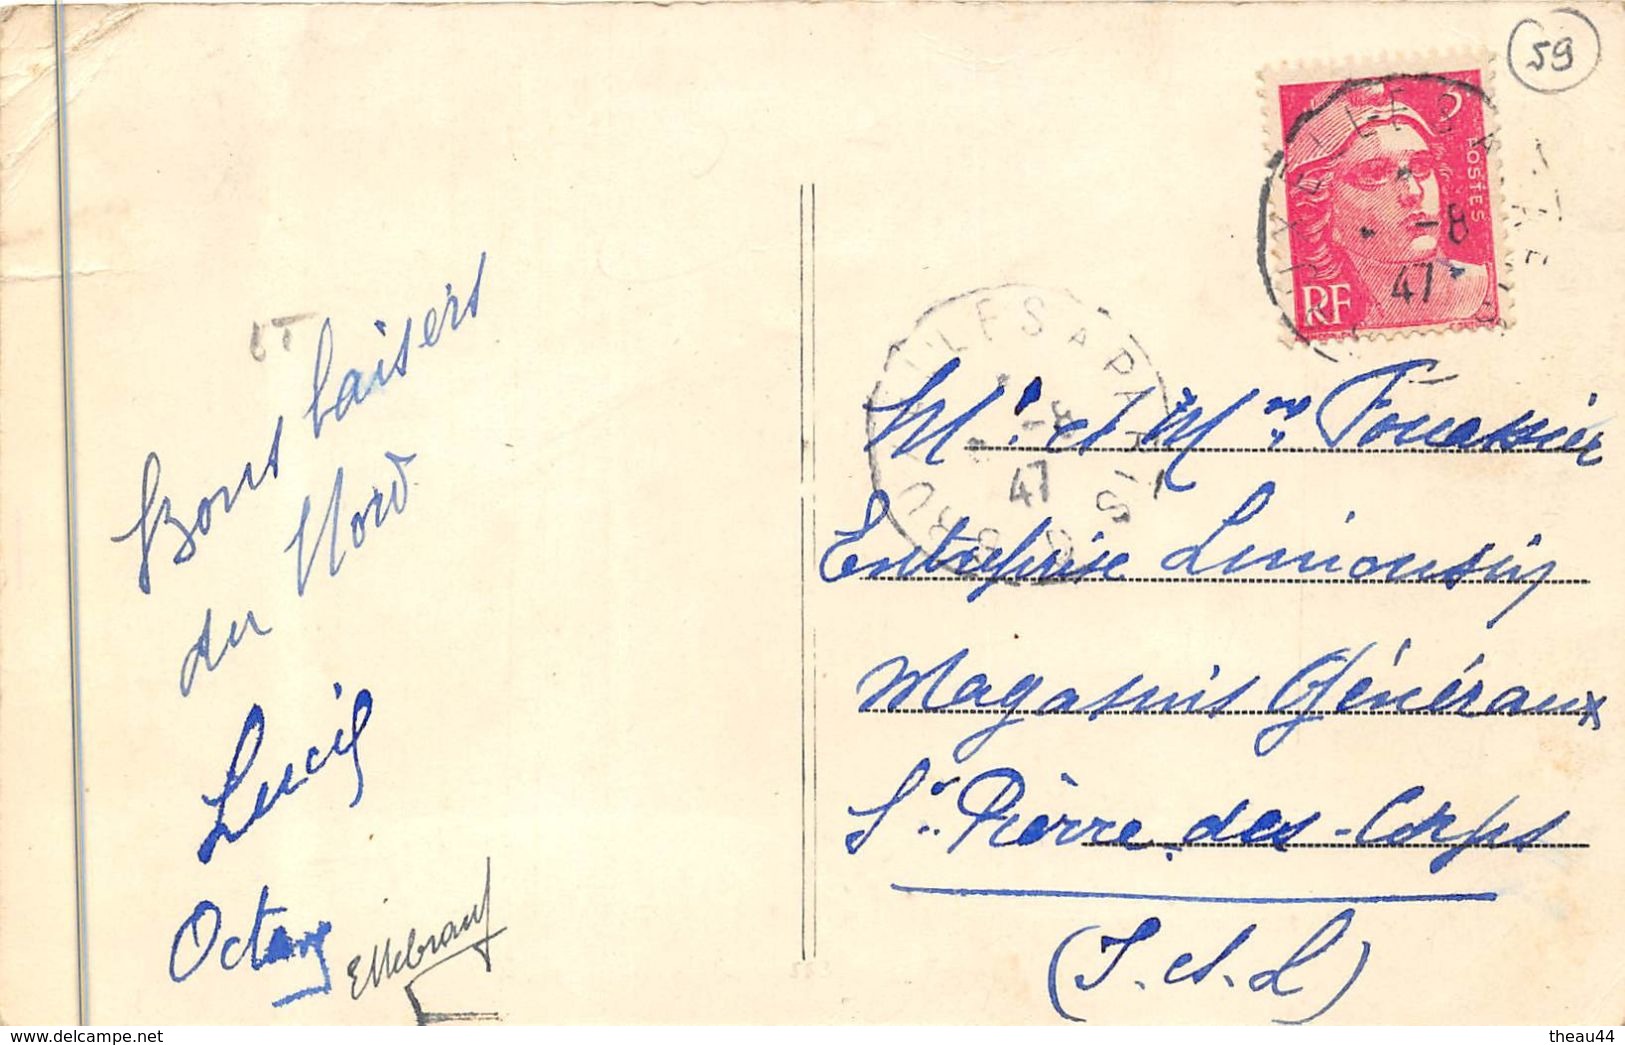 59
3F
POSTES
RF
-8
47
BRUXELLES A PARIS
-8
47
Bons baisers
du Nord
Lucie
Octave
Mr. et Mme Fouassier
Entreprise Limousin
Magasins Généraux
St. Pierre. des-Corps
(I. et. L)
delcampe.net
theau44